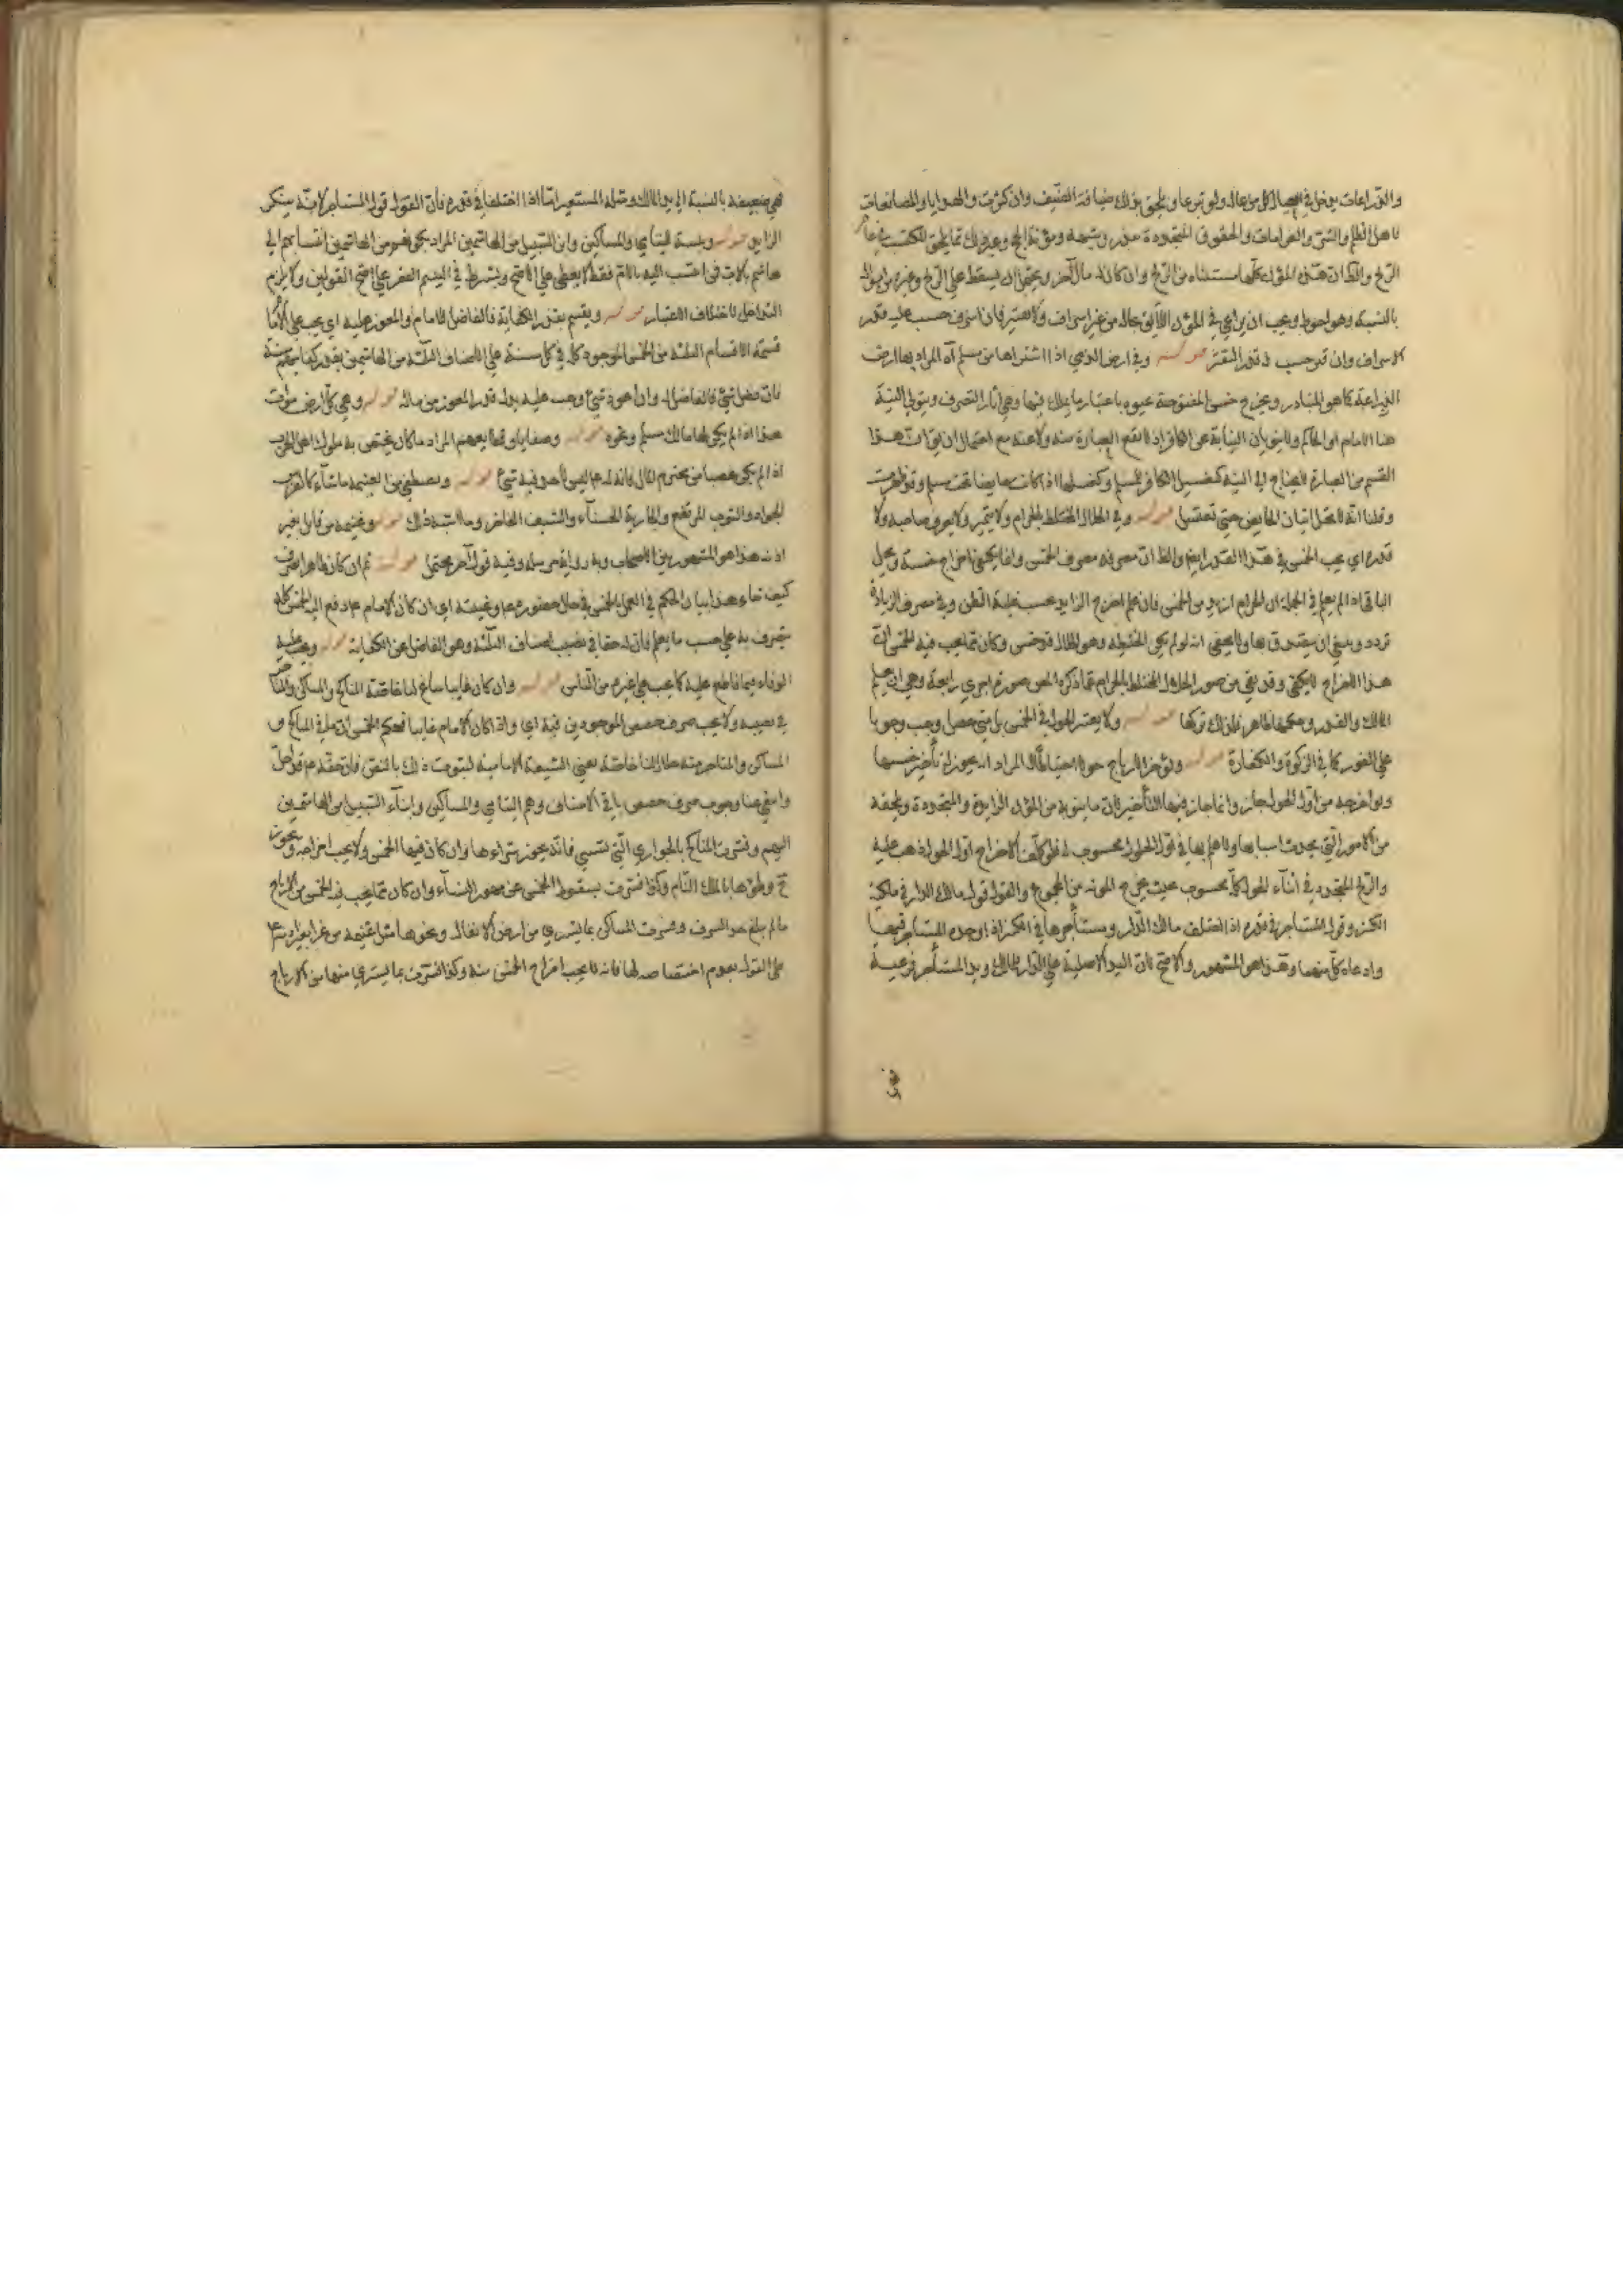 والزراعات يدخل في العيال كل من عاله ولو تبرعا ويلحق بذلك ضيافة الضيف وان كثرت والهدايا والمصانعات
لاهل الظلم والغرامات والحقوق المتجددة ونذر وشبهه ومؤنة الحج وغير ذلك مما يلحق المكتسب في عام
الربح والظ ان هذه المؤن كلها مستثناه من الربح وان كان له مال آخر ويحتمل ان يسقط على الربح وغيره من امواله
بالنسبة وهو احوط ويجب ان يراعي في المؤن اللايق بحاله من غير اسراف ولا تقتير فان اسرف حسب عليه قدر
الاسراف وان قتر حسب له قدر التقتير قوله وفي ارض الذمي اذا اشتراها من مسلم آه المراد بها ارض
الزراعة كما هو المتبادر ويخرج خمس المفتوحة عنوه باعتبار ما يملك فيها وهي آثار التصرف ويتولى النية
هنا الامام او الحاكم ولا ينويان النيابة عن الكافر اذ لا تقع العبادة منه ولا عنه مع احتمال ان يق ان هذا
القسم من العبادة لا يحتاج الى النية كغسيل الكافر للمسلم وكغسلها اذا كانت حايضا تحت مسلم وقد طهرت
وقلنا انه لا يحل اتيان الحايض حتى تغتسل قوله وفي الحلال المختلط بالحرام ولا يتميز ولا يعرف صاحبه ولا
قدره اي يجب الخمس في هذا القدر ايضا والظ ان مصرفه مصرف الخمس وانما يكفي اخراج خمسه ويحل
الباقي اذا لم يعلم في الجملة ان الحرام ازيد من الخمس فان علم اخرج الزايد بحسب غلبة الظن وفي مصرف الزيادة
تردد وينبغي ان يتصدق بها ولا يخفى انه لو لم يكن الخليط وهو الحلال قد خمس وكان مما يجب فيه الخمس ان
هذا الاخراج لا يكفي وقد بقي من صور الحلال المختلط بالحرام مما ذكره المص صورة اخرى رابعة وهي ان يعلم
المالك والقدر وحكمها ظاهر فلذلك تركها قوله ولا يعتبر الحول في الخمس بل متى حصل وجب وجوبا
على الفور كما في الزكوة والكفارة قوله ويؤخر الارباح حولا احتياطا له المراد انه يجوز له تأخير خمسها
ولو اخرجه من اول الحول جاز وانما جاز فيها التأخير لان ما ينوبه من المؤن الزايدة والمتجددة ويلحقه
من الامور التي يحدث اسبابها ولا علم بها في اول الحول محسوب له فلو كلف الاخراج اول الحول ذهب عليه
والربح المتجدد في اثناء الحول كله محسوب بحيث يخرج المونه من المجموع والقول قول مالك الدار في ملكية
الكنز وقول المستاجر في قدره اذا اختلف مالك الدار ومستأجرها في الكنز اذا وجده المستاجر فيها
وادعاه كل منهما وهذا هو المشهور والاصح لان اليد الاصلية على الدار للمالك ويد المستأجر فرعية
فهي
فهي ضعيفة بالنسبة الى يد المالك ومثله المستعير اما اذا اختلفا في قدره فان القول قول المستاجر لانه ينكر
الزايد قوله وثلثة لليتامى والمساكين وابن السبيل من الهاشميين المراد بكونهم من الهاشميين انتسابهم الى
هاشم بالاب فمن انتسب اليه بالام فقط لا يعطى على الاصح ويشترط في اليتيم الفقر على اصح القولين ولا يلزم
التداخل لاختلاف الاعتبار قوله ويقسم بقدر الكفاية فالفاضل للامام والمعوز عليه اي يجب على الامام
قسمة الاقسام الثلثة من الخمس الموجود كله في كل سنة على الاصناف الثلثة من الهاشميين بقدر كفايتهم سنة
فان فضل شيء فالفاضل له وان اعوز شيء وجب عليه بذل قدر المعوز من ماله قوله وهي كل ارض موات
هذا اذا لم يكن لها مالك مسلم ونحوه قوله وصفايا وقطايعهم المراد ما كان يختص به ملوك اهل الحرب
اذا لم يكن غصبا من محترم المال فانه له عم ليس لاحد فيه شيء قوله ويصطفي من الغنيمة ما شاء كالفرس
الجواد والثوب المرتفع والجارية الحسناء والسيف الفاخر وما اشبه ذلك قوله وغنيمة من قاتل بغير
اذنه هذا هو المشهور بين الاصحاب وبه رواية مرسله وفيه قول آخر محتمل قوله ثم ان كان ظاهرا تصرف
كيف شاء هذا بيان الحكم في العمل بالخمس في حال حضوره عم وغيبته اي ان كان الامام عم دفع اليه الخمس كله
يتصرف به على حسب ما يعلم فان له حقا في نصيب الاصناف الثلثة وهو الفاضل عن الكفاية قوله ويجب عليه
الوفاء فيما قاطع عليه كما يجب على غيره من الناس قوله وان كان غايبا ساغ لنا خاصة المناكح والمساكن والمتاجر
في نصيبه ولا يجب صرف حصص الموجودين فيه اي واذا كان الامام غايبا فحكم الخمس ان يحل في المناكح و
المساكن والمتاجر منه حلال لنا خاصة يعني الشيعة الامامية لثبوت ذلك بالنص فان حقه عم قد احل
وانتفى هنا وجوب صرف حصص باقي الاصناف وهم اليتامى والمساكين وابناء السبيل من الهاشميين
اليهم وفسرت المناكح بالجواري التي تسبى فانه يجوز شراءوها وان كان فيها الخمس ولا يجب اخراجه ويجوز
ح وطؤها بالملك التام وكذا فسرت بسقوط الخمس عن مهور النساء وان كان مما يجب فيه الخمس من الارباح
ما لم يبلغ حد السرف وفسرت المساكن بما يشترى من ارض الانفال ونحوها مثل غنيمة من غزا بغير اذنه عم
على القول بعدم اختصاصه لها فانه لا يجب اخراج الخمس منه وكذا فسرت بما يشترى منها من الارباح